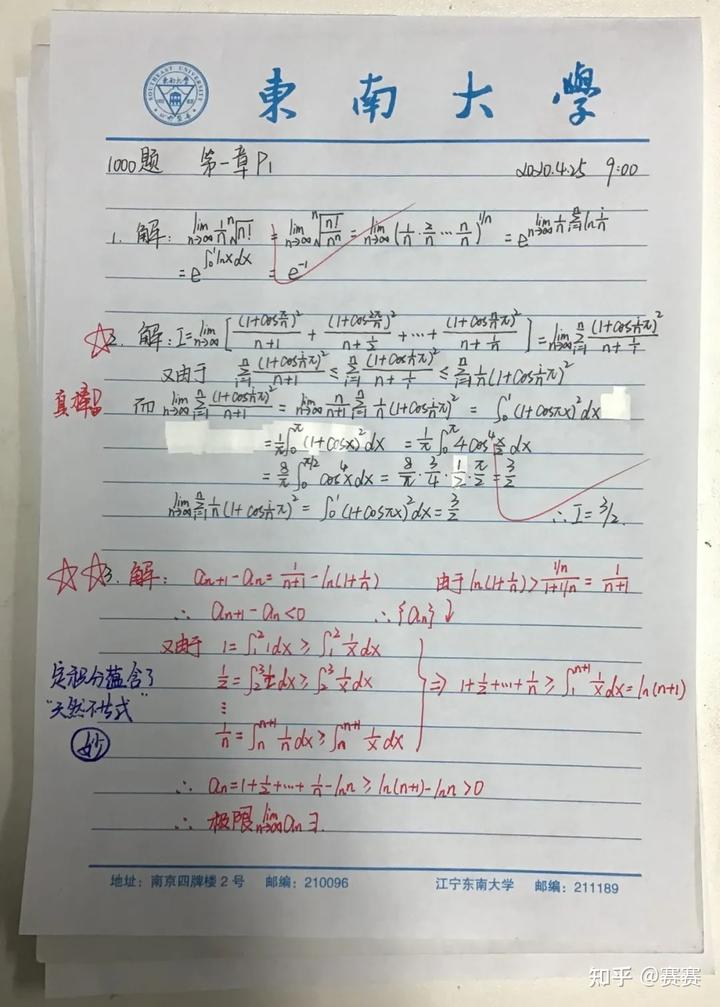 SOUTHEAST UNIVERSITY
東南大學
1000题 第一章P1 2020.4.25 9:00
1. 解: lim_{n→∞} 1/n ⁿ√n! = lim_{n→∞} ⁿ√(n!/nⁿ) = lim_{n→∞} (1/n · 2/n ··· n/n)^{1/n} = e^{lim_{n→∞} 1/n Σ_{i=1}^{n} ln i/n}
= e^{∫₀¹ lnx dx} = e^{-1}
☆2. 解: I = lim_{n→∞} [ (1+cos π/n)²/(n+1) + (1+cos 2π/n)²/(n+1/2) + ··· + (1+cos n/n π)²/(n+1/n) ] = lim_{n→∞} Σ_{i=1}^{n} (1+cos i/n π)²/(n+1/i)
又由于 Σ_{i=1}^{n} (1+cos i/n π)²/(n+1) ≤ Σ_{i=1}^{n} (1+cos i/n π)²/(n+1/i) ≤ Σ_{i=1}^{n} 1/n (1+cos i/n π)²
真棒! 而 lim_{n→∞} Σ_{i=1}^{n} (1+cos i/n π)²/(n+1) = lim_{n→∞} n/(n+1) Σ_{i=1}^{n} 1/n (1+cos i/n π)² = ∫₀¹ (1+cosπx)² dx
= 1/π ∫₀^π (1+cosx)² dx = 1/π ∫₀^π 4cos⁴ x/2 dx
= 8/π ∫₀^{π/2} cos⁴x dx = 8/π · 3/4 · 1/2 · π/2 = 3/2
lim_{n→∞} Σ_{i=1}^{n} 1/n (1+cos i/n π)² = ∫₀¹ (1+cosπx)² dx = 3/2 ∴ I = 3/2.
☆☆3. 解: a_{n+1} - a_n = 1/(n+1) - ln(1+1/n) 由于 ln(1+1/n) > (1/n)/(1+1/n) = 1/(n+1)
∴ a_{n+1} - a_n < 0 ∴ {a_n} ↓
又由于 1 = ∫₁² 1dx ≥ ∫₁² 1/x dx
定积分蕴含了 1/2 = ∫₂³ 1/2 dx ≥ ∫₂³ 1/x dx ⇒ 1+1/2+···+1/n ≥ ∫₁^{n+1} 1/x dx = ln(n+1)
"天然不等式" ⋮
妙 1/n = ∫_n^{n+1} 1/n dx ≥ ∫_n^{n+1} 1/x dx
∴ a_n = 1+1/2+···+1/n - lnn ≥ ln(n+1) - lnn > 0
∴ 极限 lim_{n→∞} a_n ∃.
地址: 南京四牌楼2号 邮编: 210096 江宁东南大学 邮编: 211189
知乎 @赛赛